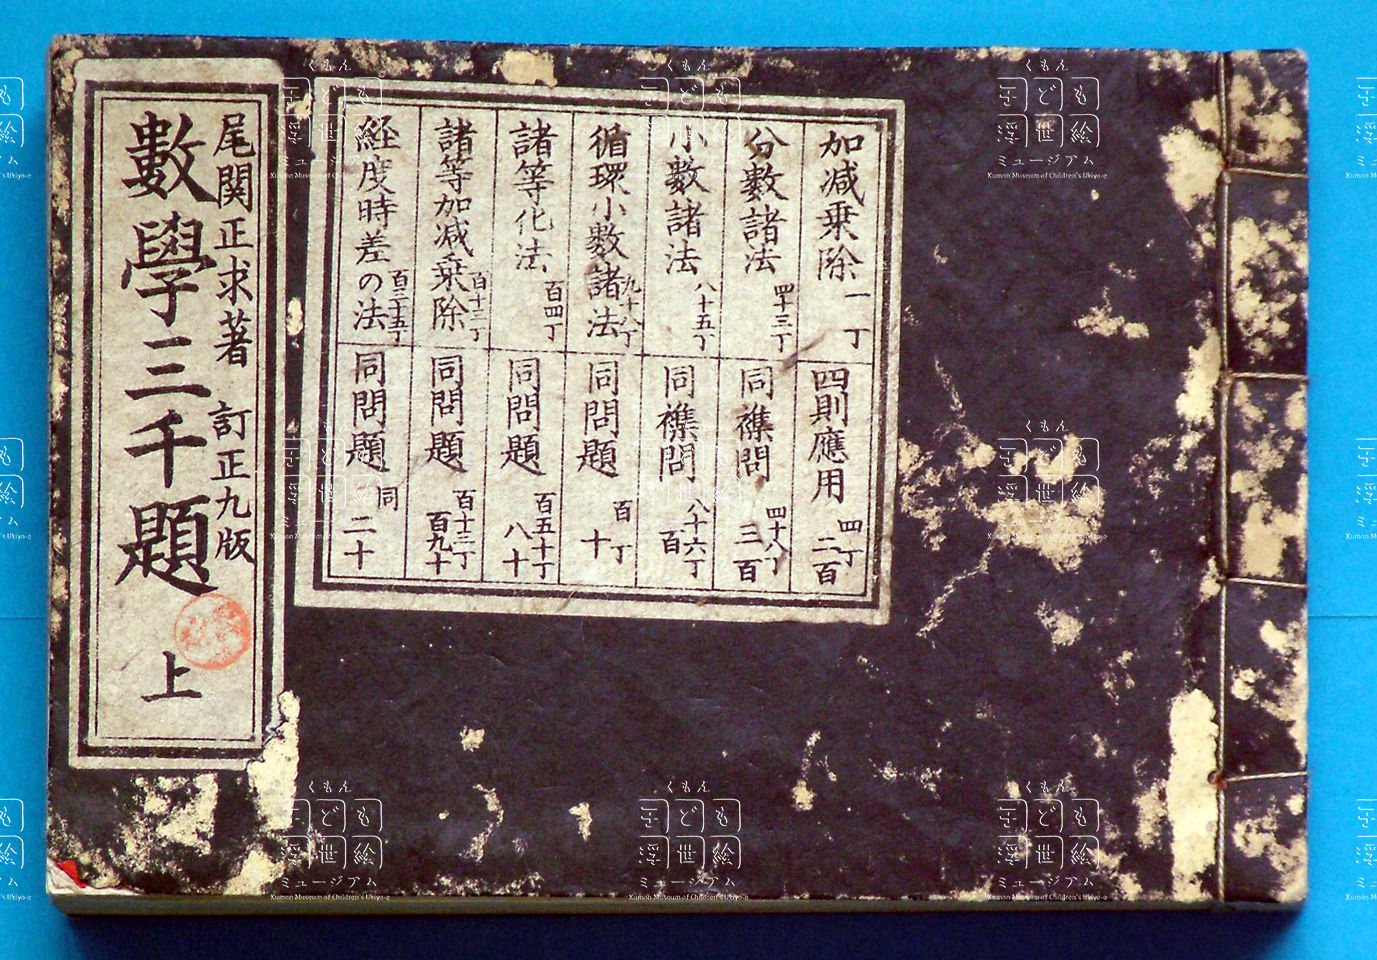 尾関正求著 訂正九版
數學三千題 上
加減乗除 一丁
四則應用 四丁 二百
分數諸法 四十三丁
同襍問 四十八丁 三百
小數諸法 八十五丁
同襍問 八十六丁 百
循環小數諸法 九十八丁
同問題 百丁 十
諸等化法 百四丁
同問題 百五十丁 八十
諸等加減乗除 百十三丁
同問題 百十三丁 百九十
経度時差の法 百三十五丁
同問題 同 二十
くもん
子ども
浮世絵
ミュージアム
Kumon Museum of Children's Ukiyo-e